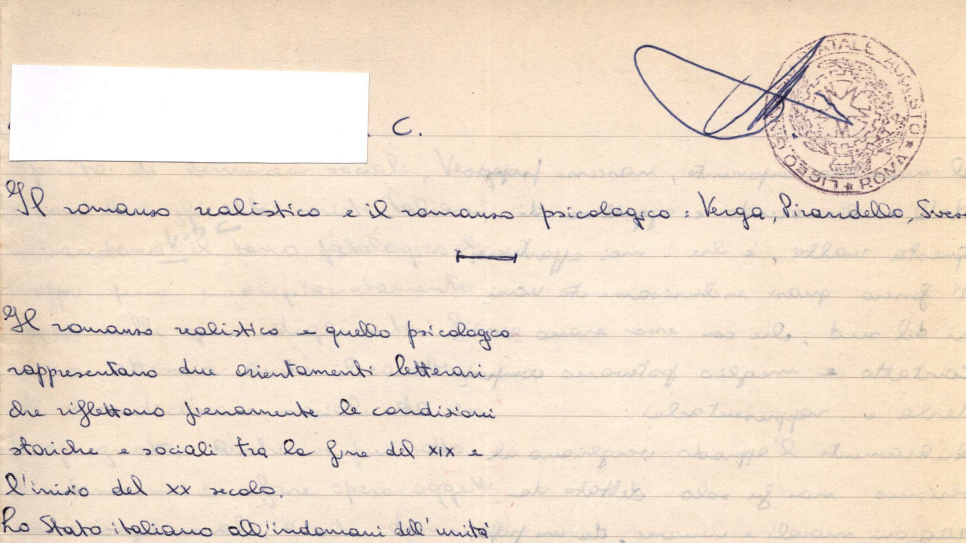 C.
LICEO GINNASIO STATALE AUGUSTO ROMA
Il romanzo realistico e il romanzo psicologico : Verga, Pirandello, Svevo
Il romanzo realistico e quello psicologico
rappresentano due orientamenti letterari
che riflettono pienamente le condizioni
storiche e sociali tra la fine del XIX e
l'inizio del XX secolo.
Lo Stato italiano all'indomani dell'unità